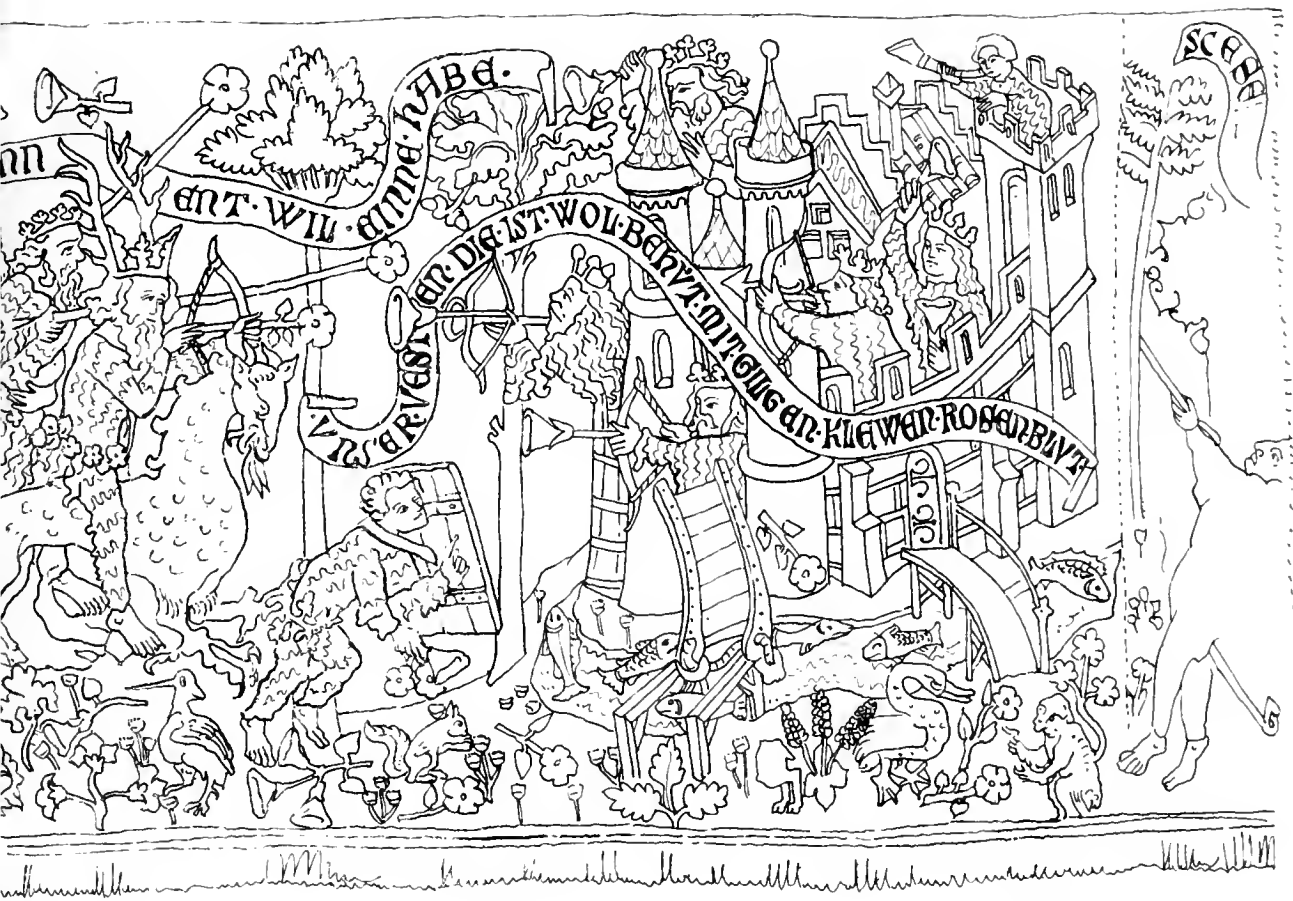 NN
ENT · WIL · EINNE · HABE ·
VNSER · VESTEN · DIE · IST · WOL · BEHVT · MIT · GILGEN · KLEWEN · ROSENBLVT ·